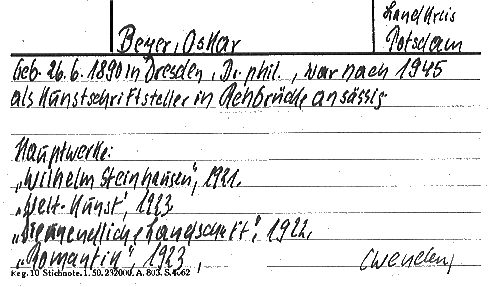 Landkreis
Beyer, Oskar
Potsdam
Geb. 26.6.1890 in Dresden, Dr. phil., war nach 1945
als Kunstschriftsteller in Rehbrücke ansässig
Hauptwerke:
„Wilhelm Steinhausen", 1921.
„Welt-Kunst", 1923
„Die unendliche Landschaft", 1922.
„Romantik", 1923,
Reg. 10 Stichnote. 1. 50. 232000. A. 803. S. 4062